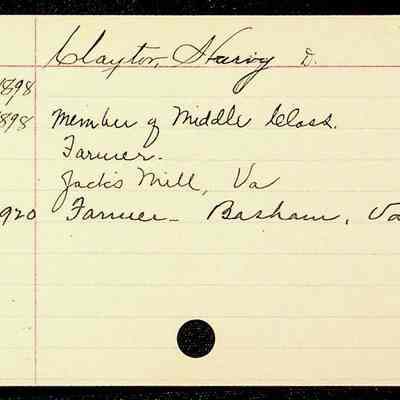 Clayton, Harvy D.
1898
1898 Member of Middle Class.
Farmer.
Jack's Mill, Va
1920 Farmer - Basham, Va